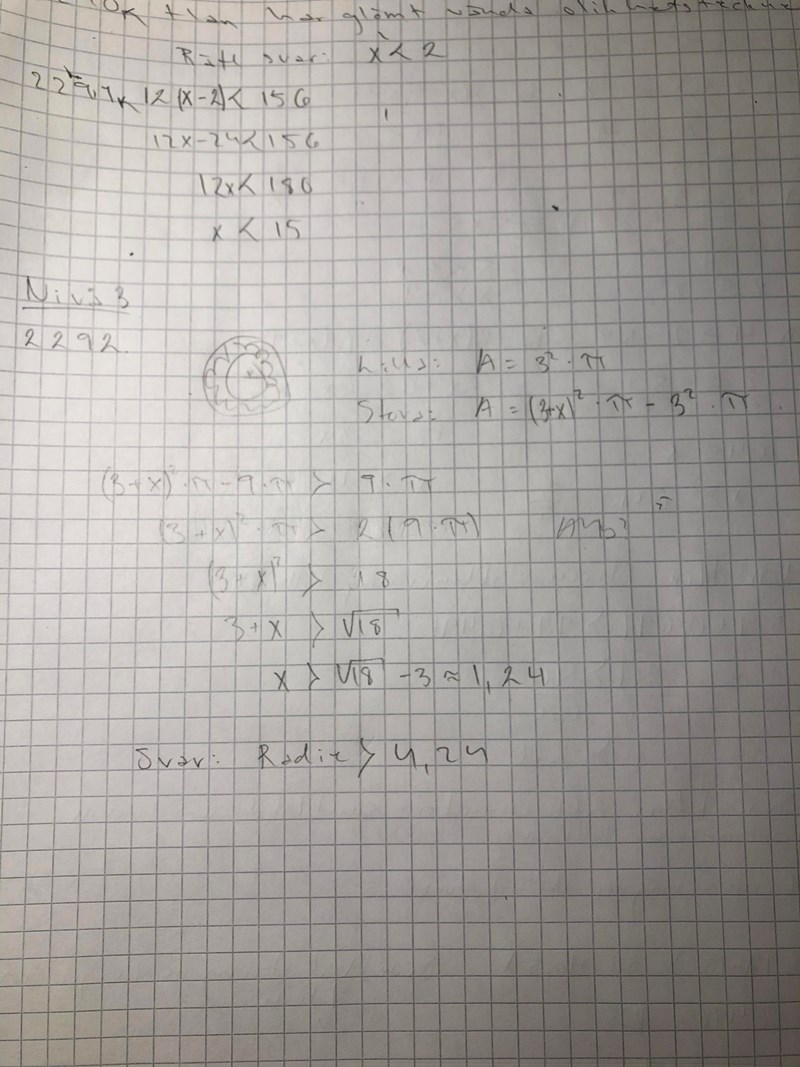 har glömt vända olikhetstecknet
Rätt svar: x < 2
12(x-2) < 156
12x-24 < 156
12x < 180
x < 15
Nivå 3
2292.
Lilla: A = 3² · π
Stora: A = (3+x)² · π - 3² · π
(3+x)² · π - 9 · π > 9 · π
(3+x)² · π > 2(9 · π)
(3+x)² > 18
3+x > √18
x > √18 - 3 ≈ 1,24
Svar: Radie > 4,24